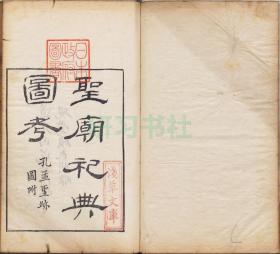 聖廟祀典
圖考
孔孟聖跡
圖附
淺草文庫
研习书社